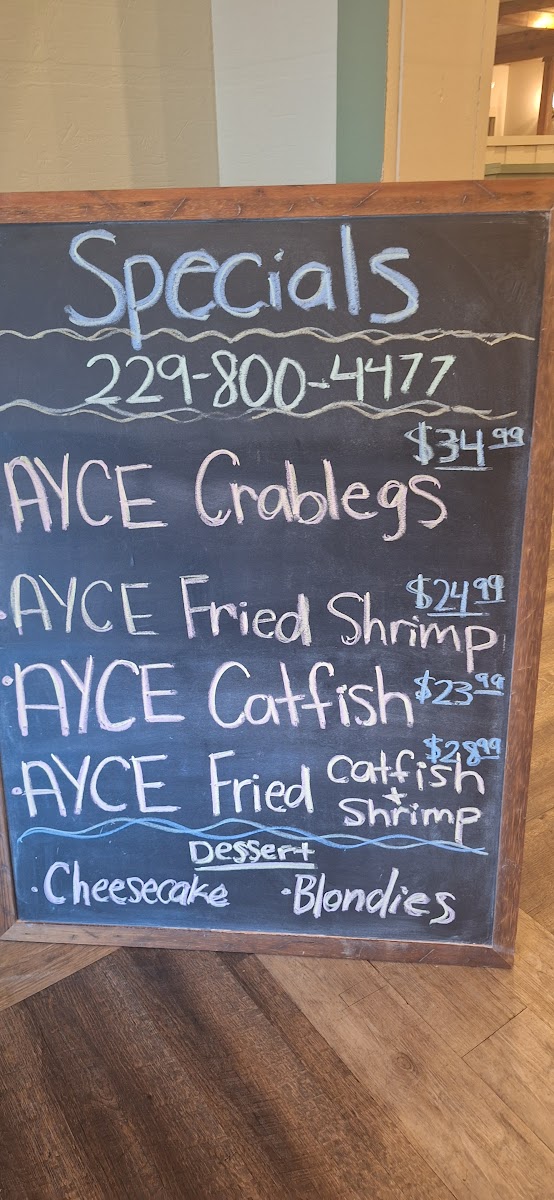 Specials
229-800-4477
$34.99
AYCE Crablegs
AYCE Fried Shrimp $24.99
AYCE Catfish $23.99
$28.99
AYCE Fried Catfish + Shrimp
Dessert
· Cheesecake · Blondies